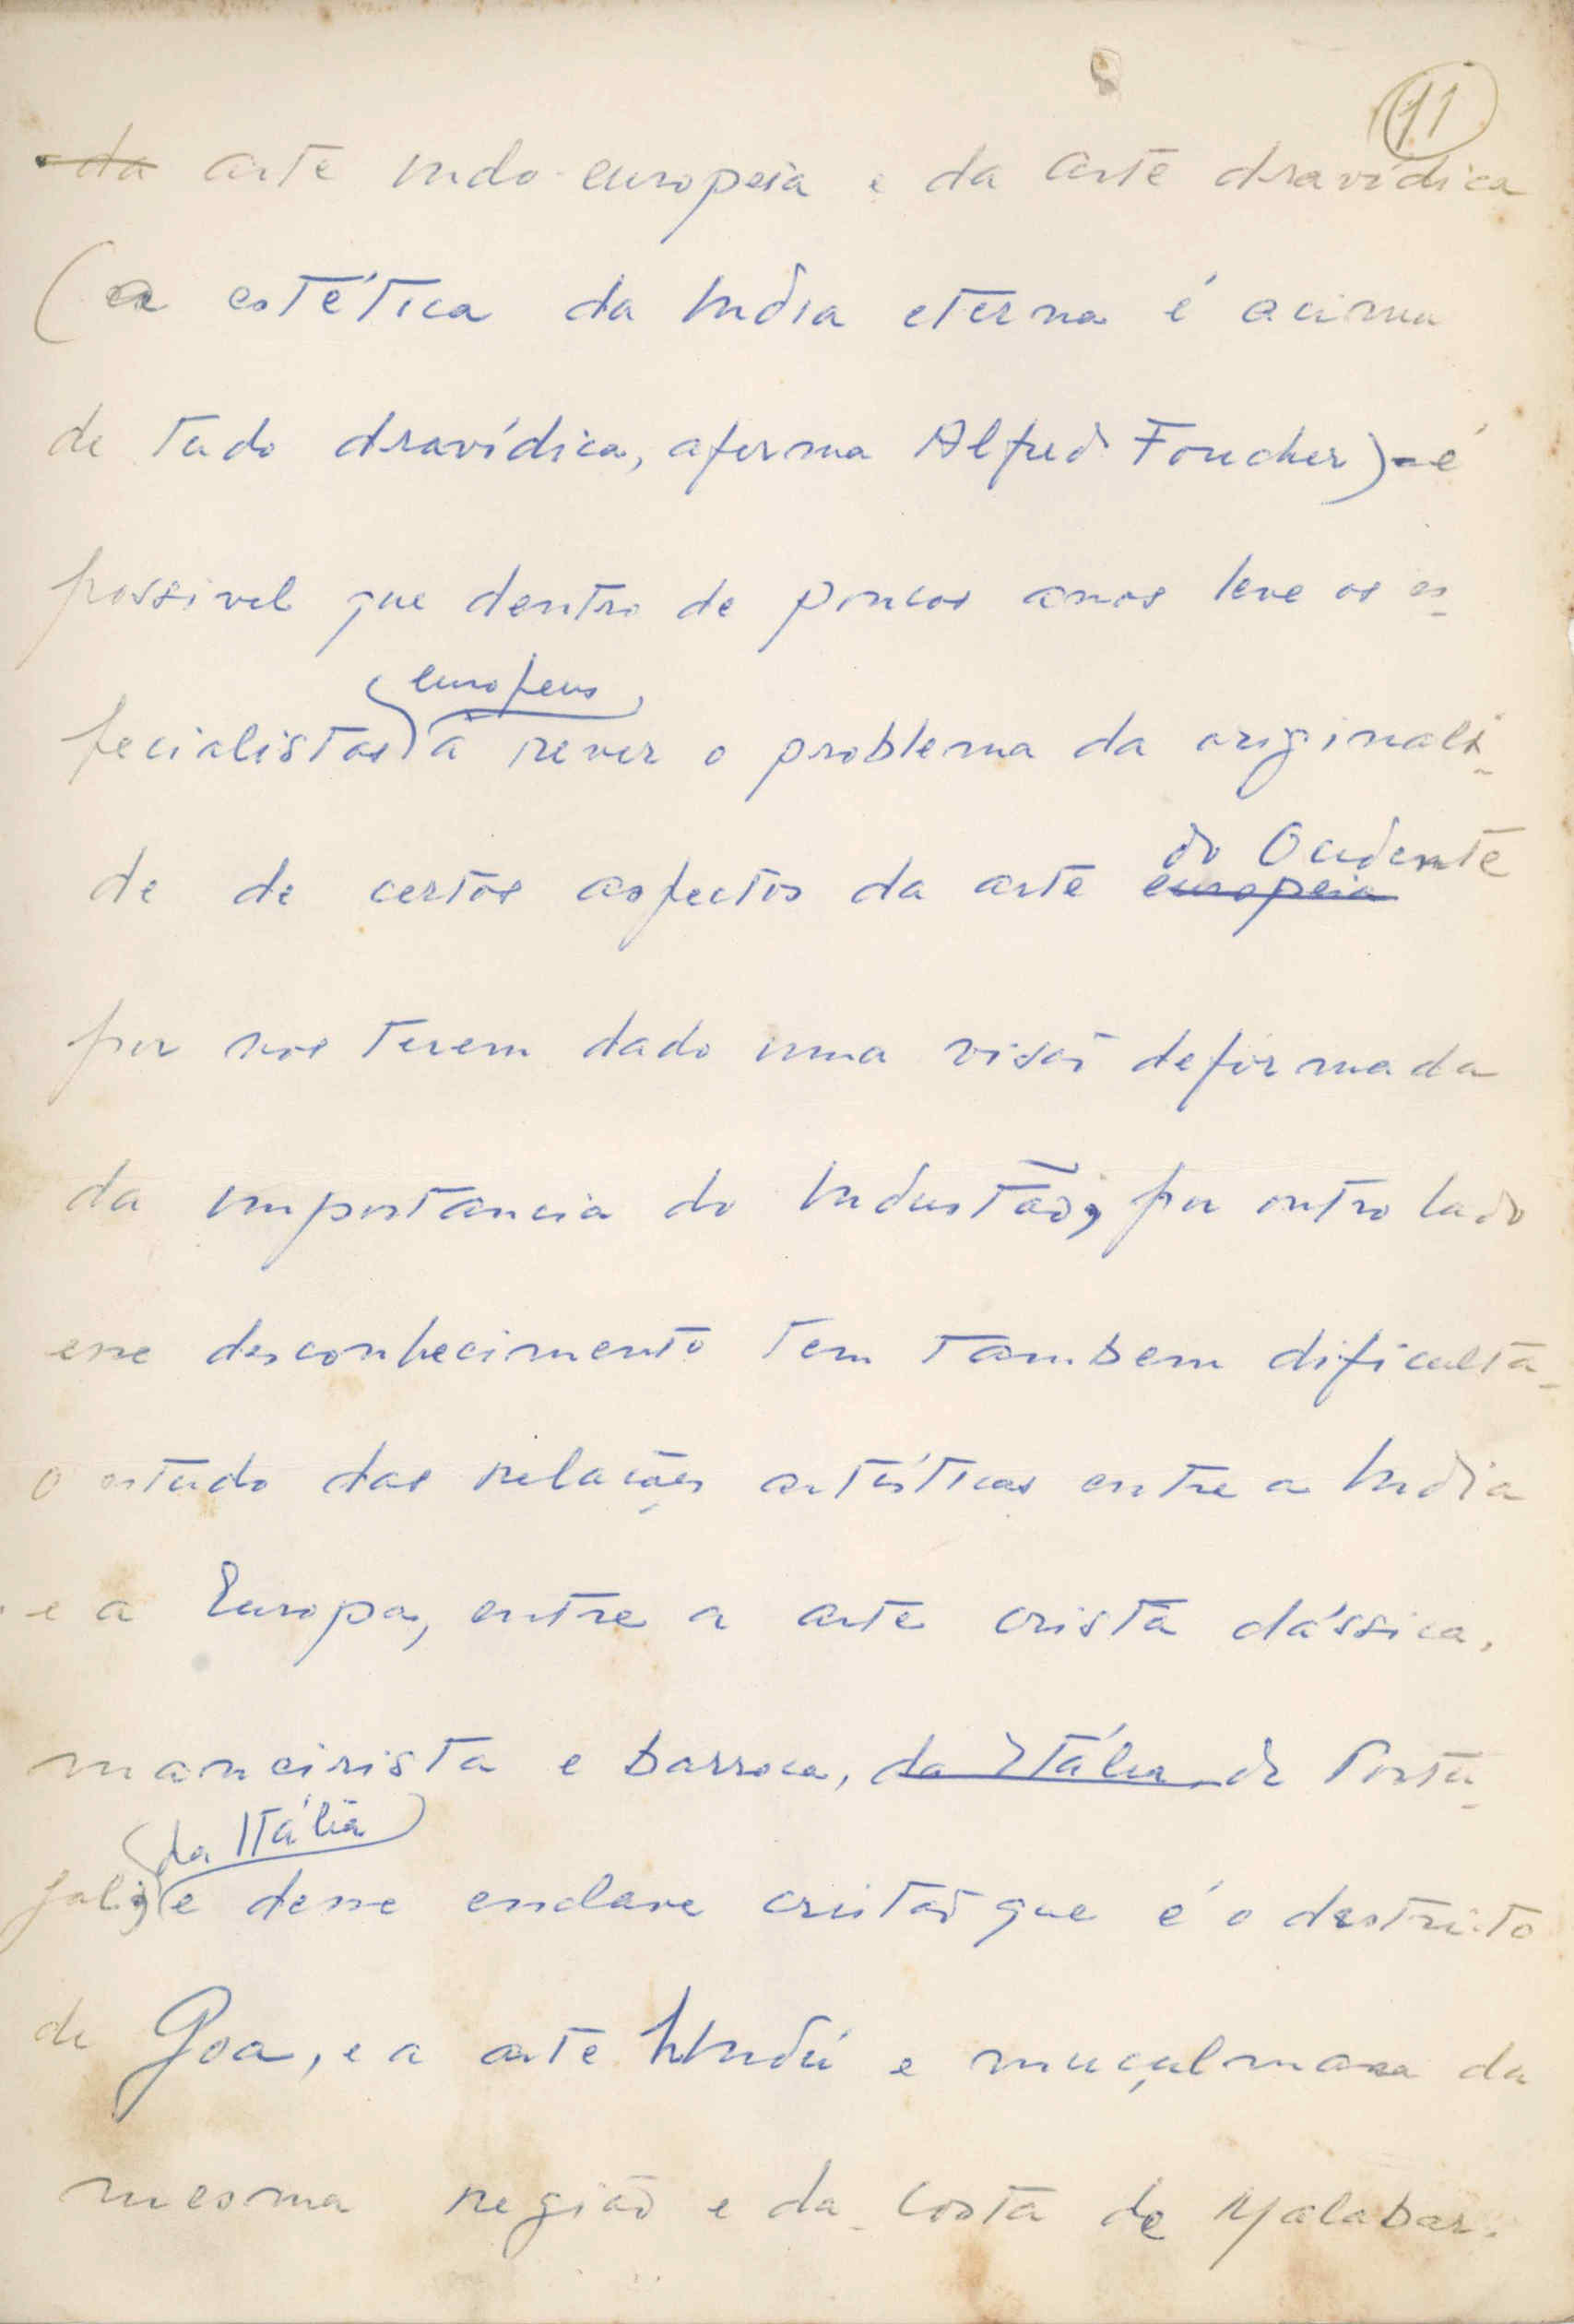 11
da arte indo-europeia e da arte dravídica
(a estética da India eterna é acima
de tudo dravídica, afirma Alfred Foucher) - é
possivel que dentro de poucos anos leve os es-
europeus
pecialistas a rever o problema da originali-
do Ocidente
de de certos aspectos da arte europeia
por nos terem dado uma visão deformada
da importancia do Industão, por outro lado
esse desconhecimento tem tambem dificulta-
o estudo das relações artísticas entre a India
e a Europa, entre a arte cristã clássica,
maneirista e barroca, da Itália de Portu-
da Itália
gal, e desse enclave cristão que é o destrito
de Goa, e a arte hindú e muçulmana da
mesma região e da Costa de Malabar.